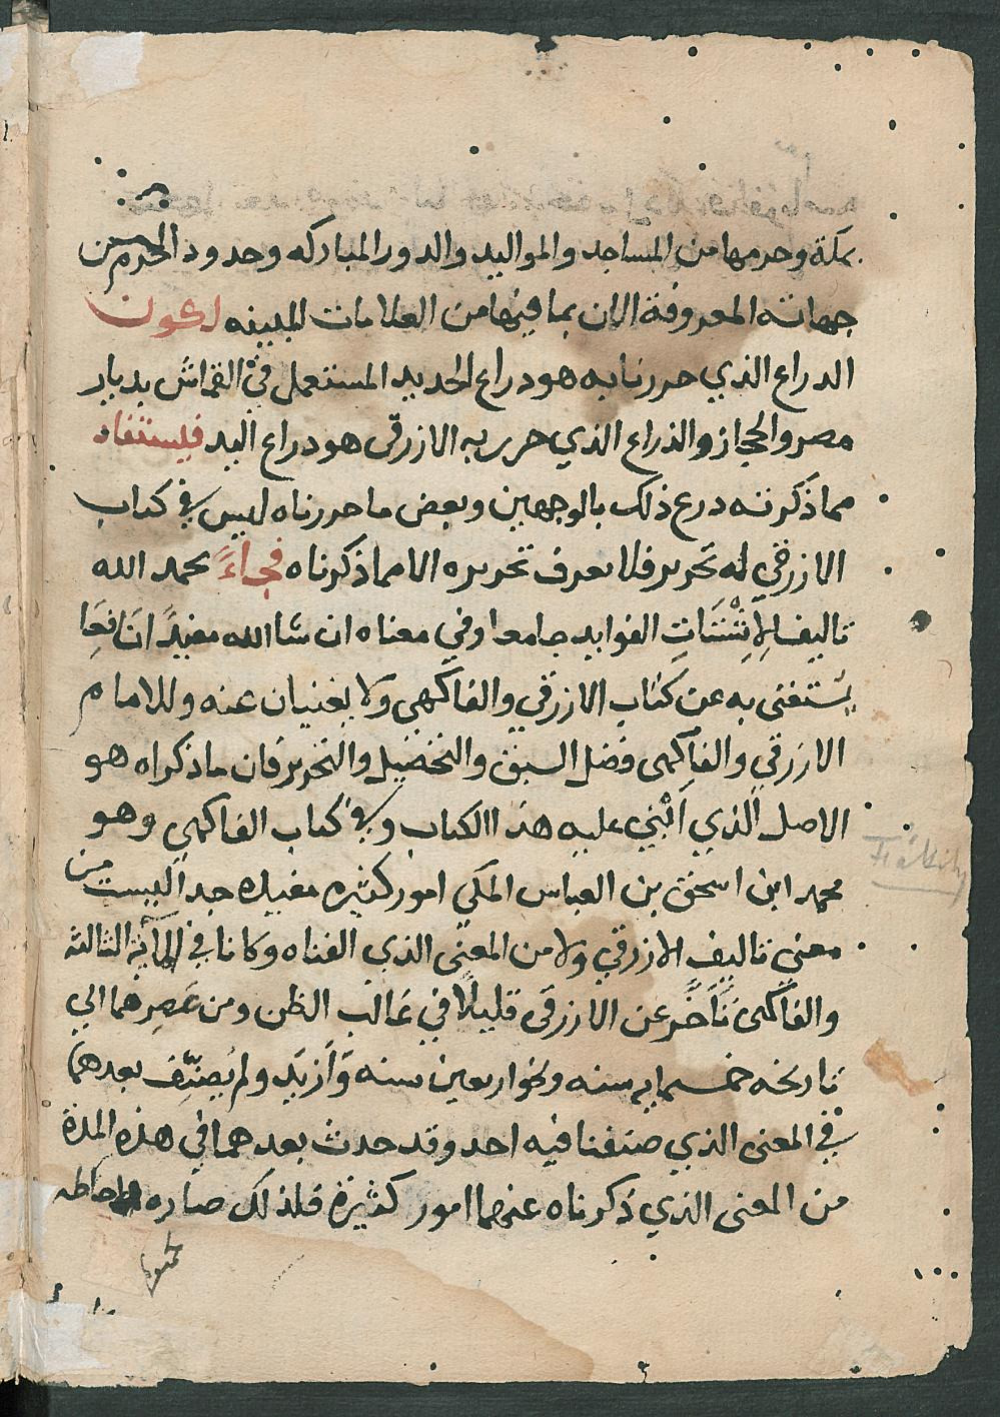 بمكة وحرمها من المساجد والمواليد والدور المباركه وحدود الحرم من
جهاته المعروفة الان بما فيها من العلامات المبينه لكون
الدراع الذي حررنا به هو دراع الحديد المستعمل في القماش بديار
مصر والحجاز والذراع الذي حرر به الازرقى هو دراع اليد فليستفاد
مما ذكرته درع ذلك بالوجهين وبعض ما حررناه ليس في كتاب
الازرقي له تحرير فلا يعرف تحريره الا مما ذكرناه فجاءَ بحمد الله
تاليف الاشتات الفوايد جامعا وفي معناه ان شا الله مفيدًا نافعَا
يُستغنى به عن كتاب الازرقي والفاكهي ولا يغنيان عنه وللامام
الازرقي والفاكهى فضل السبق والتحصيل والتحرير فان ما ذكراه هو
الاصل الذي انبني عليه هذا الكتاب وفي كتاب الفاكهي وهو
محمد ابن اسحق بن العباس المكي امور كثيره مفيده جدا ليست من
معنى تاليف الازرقي ولا من المعنى الذي الفناه وكانا في المأية الثالثة
والفاكهى تأخر عن الازرقى قليلًا في غالب الظن ومن عصرهما الي
تاريخه خمسمايه سنه ونحو اربعين سنه وَأزيَد ولم يُصنّف بعدهما
في المعنى الذي صنفنا فيه احد وقد حدث بعدهما في هذه المدة
من المعنى الذي ذكرناه عنهما امور كثيرة فلذلك
Fâkihy